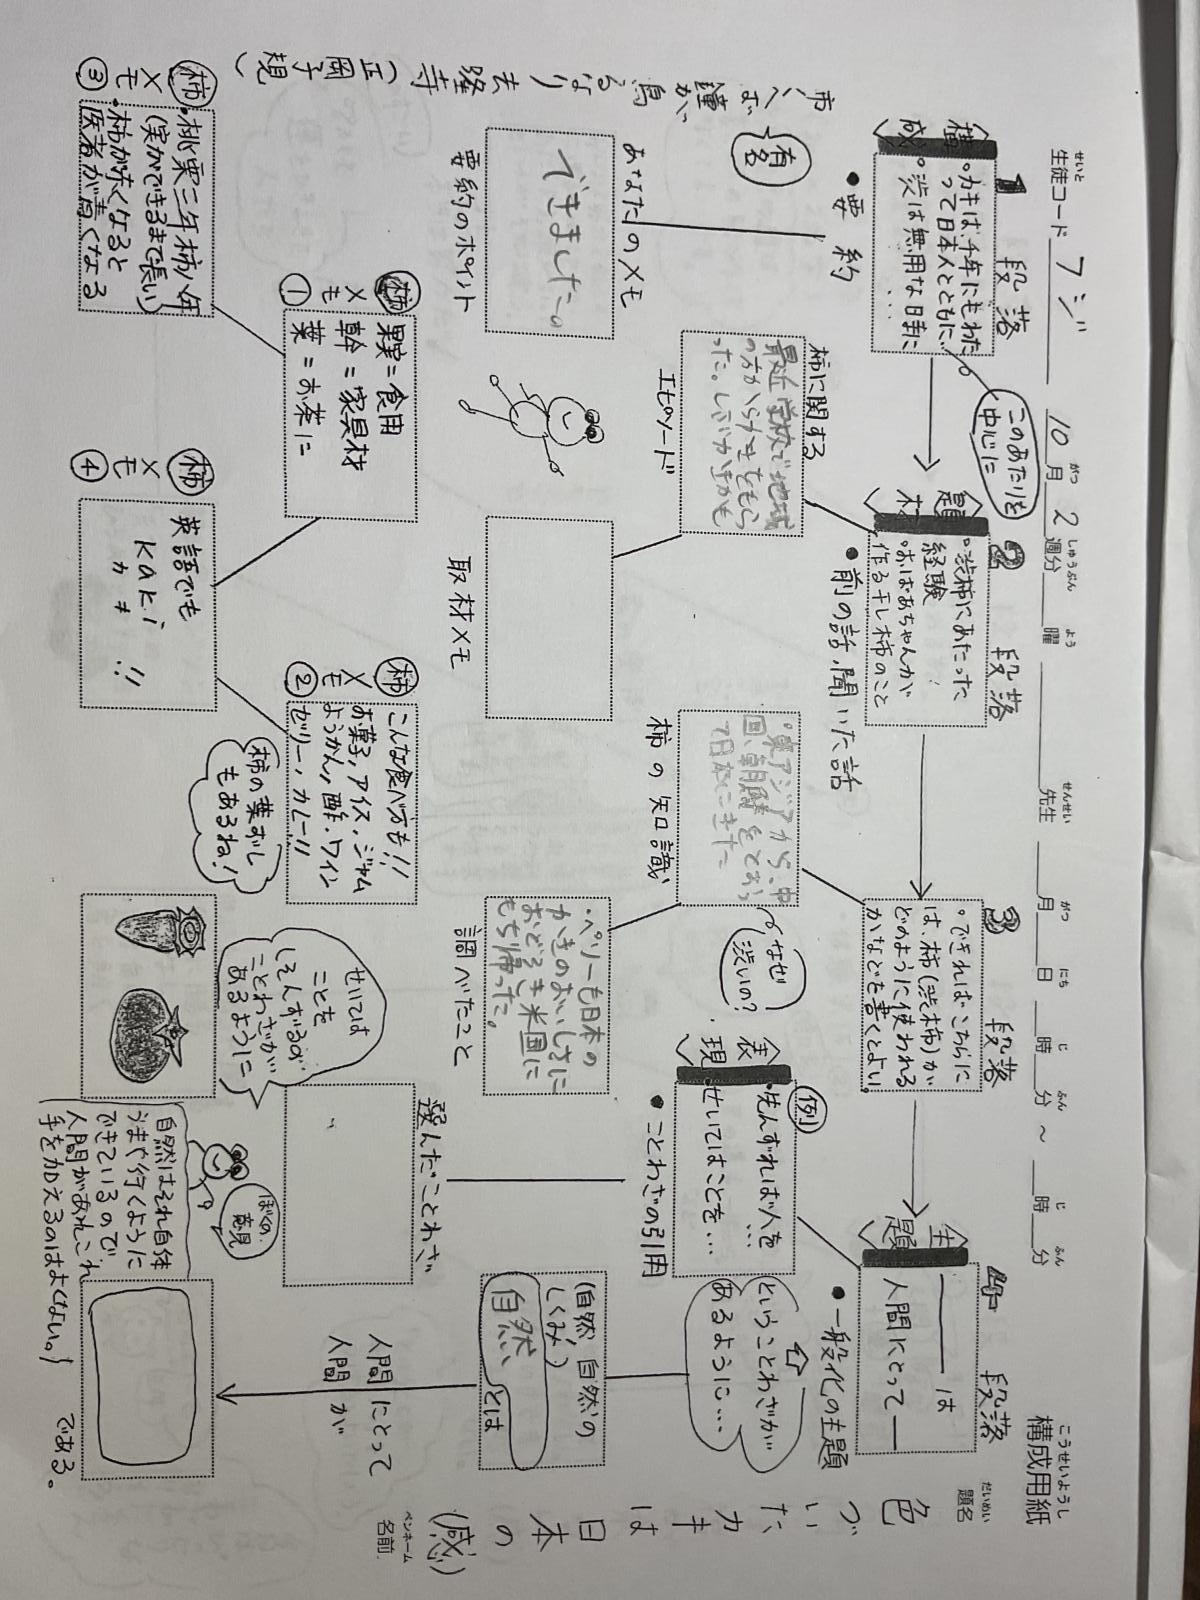 構成用紙
こうせいようし
題名
だいめい
色づいたカキは日本の(感じ)
ペンネーム
名前
生徒コード フジ 10月2週分 曜 先生 月 日 時 分 ~ 時 分
せいと
がつ
しゅうぶん
よう
せんせい
がつ
にち
じ
ふん
じ
ふん
1段落
〈構成〉
・カキは、千年にもわた
って日本人とともに…
・渋は無用な日時に
…
このあたりを
中心に
●要約
有名
あなたのメモ
できました。
要約のポイント
柿くへば鐘が鳴るなり法隆寺(正岡子規)
2段落
〈題材〉
・渋柿にあたった
経験
・おばあちゃんが
作る干し柿のこと
●前の話、聞いた話
柿に関する
最近学校で地域
の方からかきをもら
った。しぶいかきかも
エピソード
取材メモ
3段落
・できればこちらに
は、柿(渋柿)が
どのように使われる
かなどを書くとよい。
・東アジアから、中
国、朝鮮をとおっ
て日本にきた
柿の知識
なぜ
渋いの?
・ペリーも日本の
かきのおいしさに
おどろき米国に
もち帰った。
調べたこと
4段落
〈主題〉
――は
人間にとって―
●一般化の主題
〈表現〉
例
・先んずれば人を…
・せいてはことを…
●ことわざの引用
ということわざが
あるように…
選んだことわざ
せいては
ことを
(そんずる)が
ことわざが
あるように
(自然、自然の
しくみ)
自然 とは
人間にとって
人間が
である。
ぼくの
意見
自然はそれ自体
うまや行くように
できているので
人間があれこれ
手を加えるのはよくない。
柿メモ①
果実=食用
幹=家具材
葉=お茶に
柿メモ②
こんな食べ方も!!
お菓子、アイス・ジャム
ようかん、酢・ワイン
ゼリー、カレー!!
柿の葉ずし
もあるね!
柿メモ③
・桃栗三年柿八年
(実ができるまで長い)
・柿が赤くなると
医者が青くなる
柿メモ④
英語でも
kaki
カキ !!